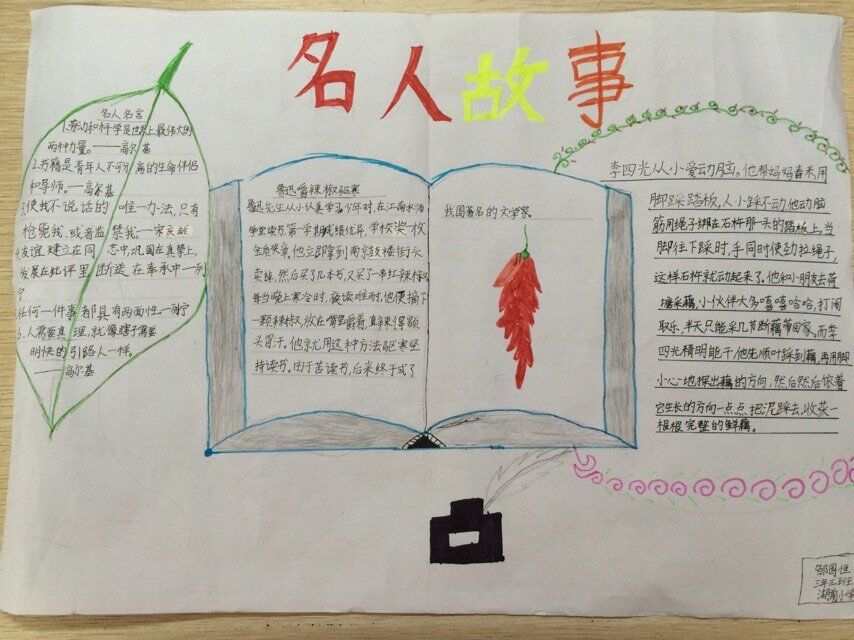 名人故事
名人名言
1.劳动和科学是世界上最伟大的
两种力量。——高尔基
2.书籍是青年人不可分离的生命伴侣
和导师。—高尔基
3.使我不说话的唯一办法,只有
枪毙我,或者监禁我—宋庆龄
4.友谊建立在同志中,巩固在真挚上,
发展在批评里,断送在奉承中—列
宁
5.任何一件事都具有两面性。—列宁
6.人需要真理,就像瞎子需要
明快的引路人一样。
——高尔基
鲁迅嚼辣椒驱寒
鲁迅先生从小认真学习少年时,在江南水师
学堂读书,第一学期成绩优异,学校奖一枚
金质奖章,他立即拿到南京鼓楼街头
卖掉,然后买了几本书,又买了一串红辣椒。
每当晚上寒冷时,夜读难耐,他便摘下
一颗辣椒,放在嘴里嚼着,直辣得额
头冒汗。他就用这种方法驱寒坚
持读书。由于苦读书,后来终于成了
我国著名的文学家
李四光从小爱动脑。他帮妈妈舂米用
脚踩踏板,人小踩不动,他动脑
筋用绳子绑在石杵那一头的踏板上,当
脚往下踩时,手同时使劲拉绳子,
这样石杵就动起来了。他和小朋友去荷
塘采藕,小伙伴大多嘻嘻哈哈,打闹
取乐,半天只能采几节断藕带回家。而李
四光精明能干,他先顺叶踩到藕,再用脚
小心地探出藕的方向,然后然后依着
它生长的方向一点点把泥踩去,收获一
根根完整的鲜藕。
三年三班